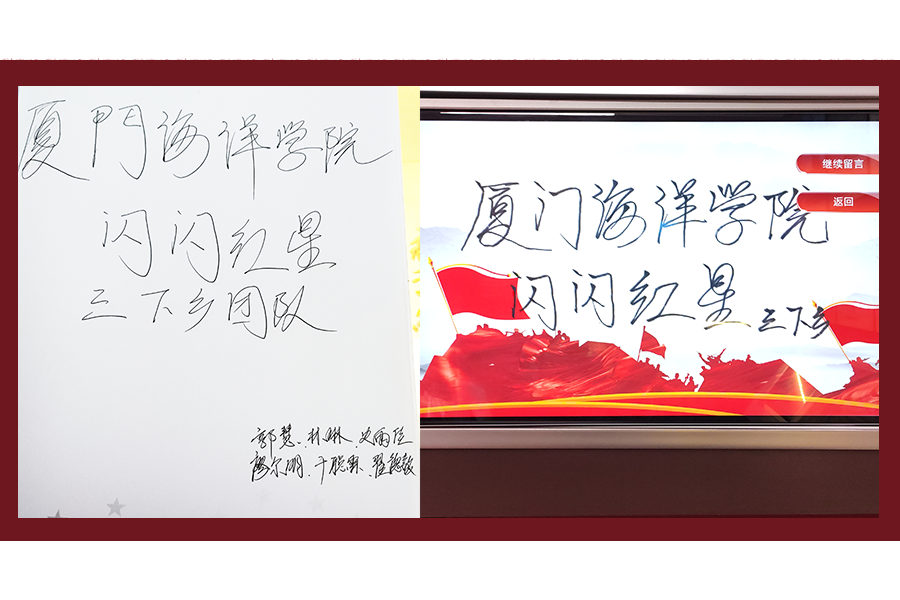 厦門海洋学院
闪闪红星
三下乡团队
郭慧、林琳、史雨
廖尔明、
继续留言
返回
厦门海洋学院
闪闪红星 三下乡